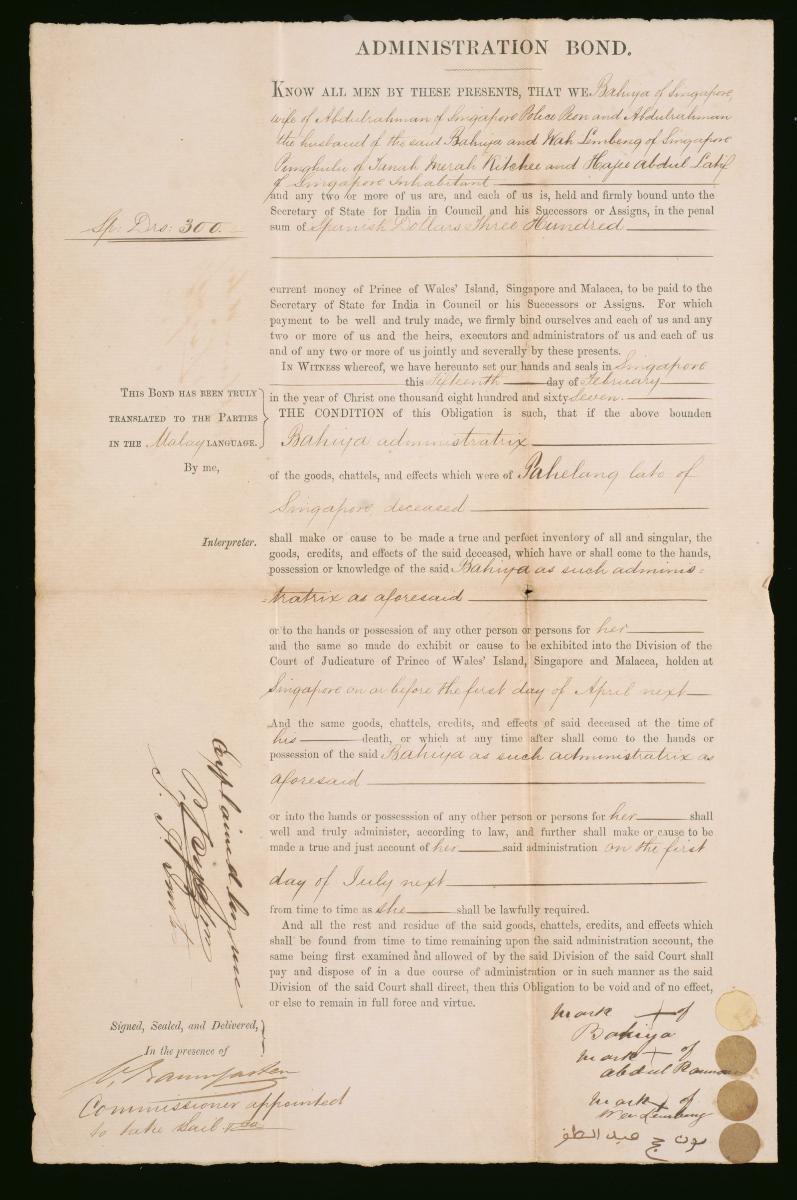 ADMINISTRATION BOND.
KNOW ALL MEN BY THESE PRESENTS, THAT WE Bahiya of Singapore,
wife of Abdulrahman of Singapore Police Peon and Abdulrahman
the husband of the said Bahiya and Wah Lembeng of Singapore
Punghulu of Tanah Merah Kitchee and Hajee Abdul Latif
of Singapore Inhabitant
and any two or more of us are, and each of us is, held and firmly bound unto the
Secretary of State for India in Council and his Successors or Assigns, in the penal
Sp: Drs: 300.
sum of Spanish Dollars Three Hundred
current money of Prince of Wales' Island, Singapore and Malacca, to be paid to the
Secretary of State for India in Council or his Successors or Assigns. For which
payment to be well and truly made, we firmly bind ourselves and each of us and any
two or more of us and the heirs, executors and administrators of us and each of us
and of any two or more of us jointly and severally by these presents.
IN WITNESS whereof, we have hereunto set our hands and seals in Singapore
this fifteenth day of February
in the year of Christ one thousand eight hundred and sixty seven.
THIS BOND HAS BEEN TRULY
TRANSLATED TO THE PARTIES
IN THE Malay LANGUAGE.
By me,
Interpreter.
THE CONDITION of this Obligation is such, that if the above bounden
Bahiya administratrix
of the goods, chattels, and effects which were of Pahelang late of
Singapore, deceased
shall make or cause to be made a true and perfect inventory of all and singular, the
goods, credits, and effects of the said deceased, which have or shall come to the hands,
possession or knowledge of the said Bahiya as such adminis=
=tratrix as aforesaid
or to the hands or possession of any other person or persons for her
and the same so made do exhibit or cause to be exhibited into the Division of the
Court of Judicature of Prince of Wales' Island, Singapore and Malacca, holden at
Singapore on or before the first day of April next
And the same goods, chattels, credits, and effects of said deceased at the time of
his death, or which at any time after shall come to the hands or
possession of the said Bahiya as such administratrix as
aforesaid
or into the hands or possesssion of any other person or persons for her shall
well and truly administer, according to law, and further shall make or cause to be
made a true and just account of her said administration on the first
day of July next
from time to time as she shall be lawfully required.
And all the rest and residue of the said goods, chattels, credits, and effects which
shall be found from time to time remaining upon the said administration account, the
same being first examined and allowed of by the said Division of the said Court shall
pay and dispose of in a due course of administration or in such manner as the said
Division of the said Court shall direct, then this Obligation to be void and of no effect,
or else to remain in full force and virtue.
Explained by me
Signed, Sealed, and Delivered,
In the presence of
Commissioner appointed
to take bail
mark + of
Bahiya
mark + of
abdul Raman
mark + of
Wa Lembeng